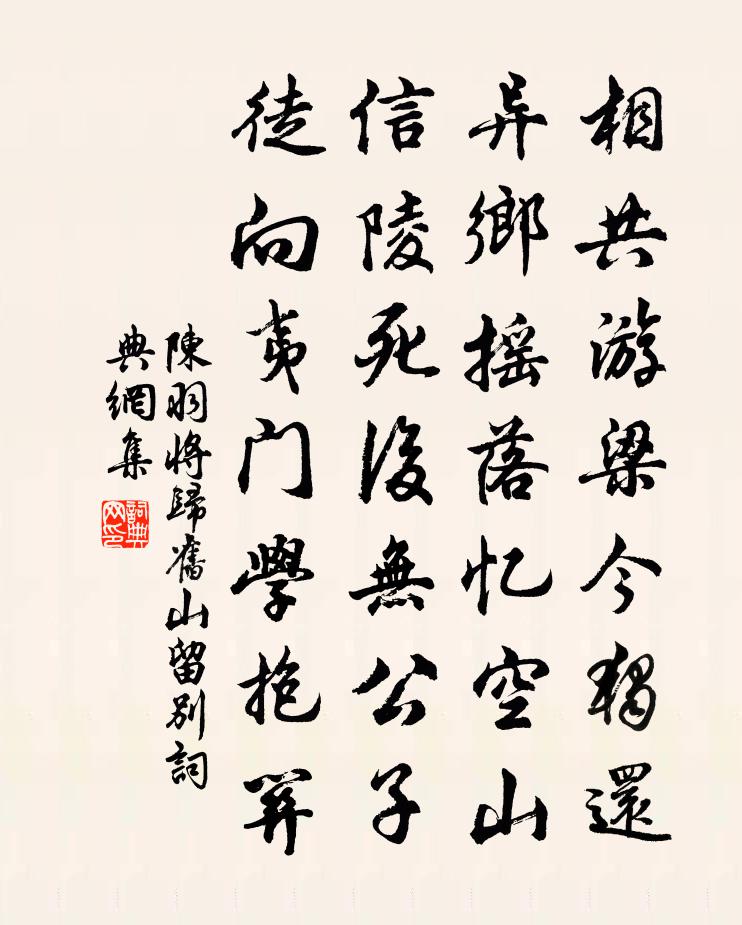 相共游梁今獨還
异鄉摇落忆空山
信陵死後無公子
徒向夷門學抱關
陳羽將歸舊山留別詞
典網集
詞典
网印